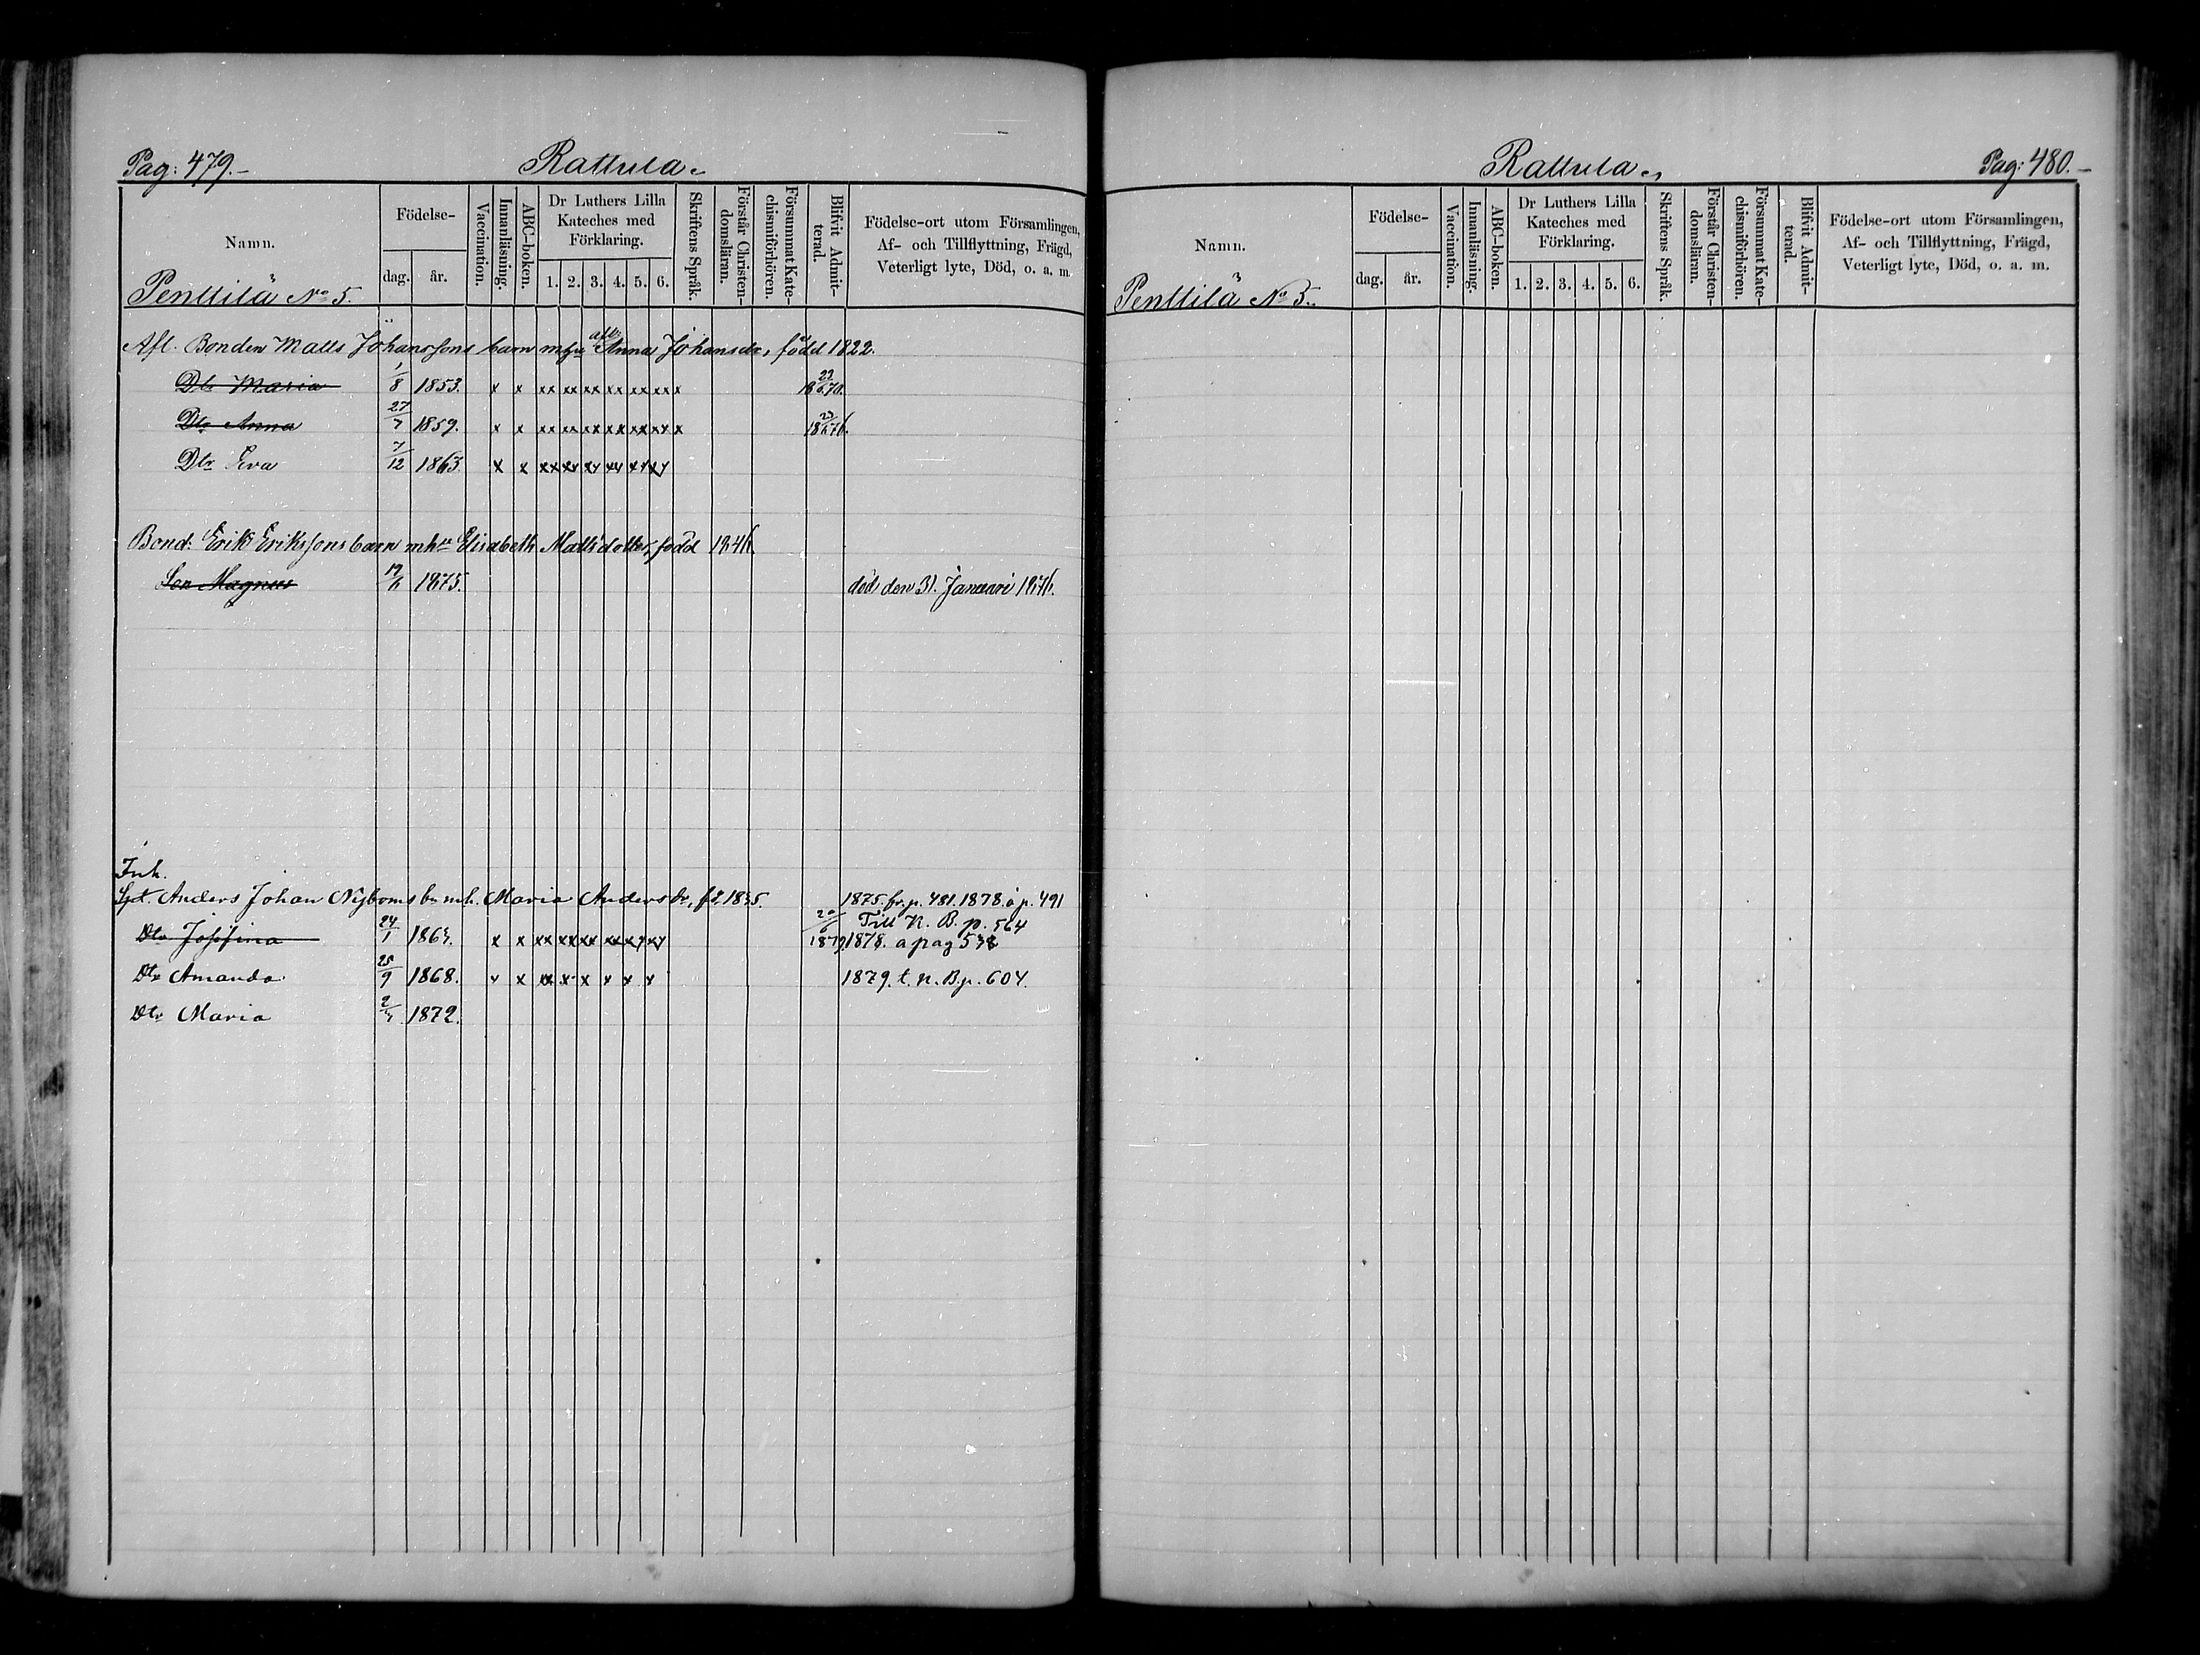 Pag: 479.
Rattula.
Namn.
Födelse-
dag.
år.
Vaccination.
Innanläsning.
ABC-boken.
Dr Luthers Lilla
Kateches med
Förklaring.
1. 2. 3. 4. 5. 6.
Skriftens Språk.
Förstår Christen-
domsläran.
Försummat Kate-
chismiförhören.
Blifvit Admit-
terad.
Födelse-ort utom Församlingen,
Af- och Tillflyttning, Frägd,
Veterligt lyte, Död, o. a. m.
Penttilä No 5.
Afl. Bonden Matts Johanssons barn Anna Johansdr, född 1822.
Dtr Maria 1/8 1853. x x xx xx xx xx xx xx x
Dtr Anna 1859. x x xx xx xx xx xx xx x
Dtr Eva 7/12 1863 x x xx xx xx xx xx xx
Bond: Erik Erikssons barn mhu Elisabeth Mattsdotter, född 1846.
Son Magnus 19/6 1875. död den 31. Januari 1876.
Inh.
Spt. Anders Johan Nyboms br mh. Maria Andersdr, fd 1835. 1875 fr. p. 481. 1878 å p. 491
Till N. B. p. 564
Dtr Josefina 24/1 1864. x x xx xx xx xx xx xx 20/6 1879 1878. a pag 538
Dtr Amanda 25/9 1868. x x xx x x x x x 1879. t. N. B. p. 604.
Dtr Maria 1872.
Rattula.
Pag: 480.
Namn.
Födelse-
dag.
år.
Vaccination.
Innanläsning.
ABC-boken.
Dr Luthers Lilla
Kateches med
Förklaring.
1. 2. 3. 4. 5. 6.
Skriftens Språk.
Förstår Christen-
domsläran.
Försummat Kate-
chismiförhören.
Blifvit Admit-
terad.
Födelse-ort utom Församlingen,
Af- och Tillflyttning, Frägd,
Veterligt lyte, Död, o. a. m.
Penttilä No 5.